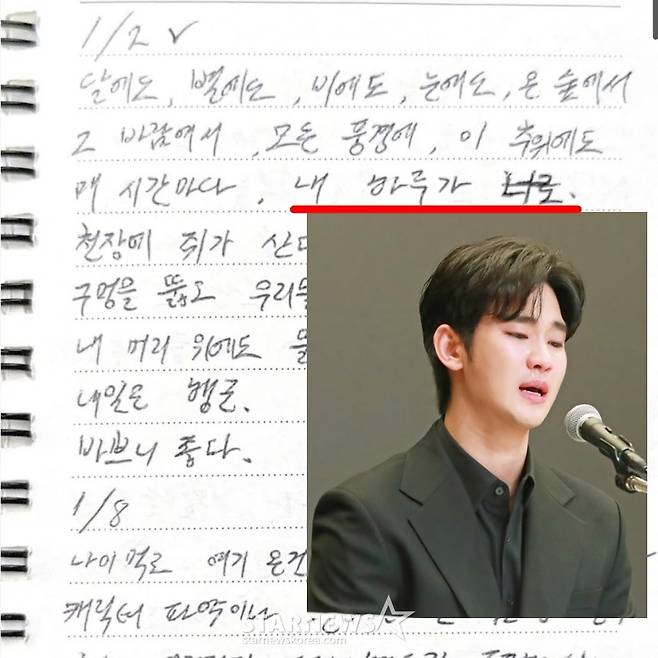 1/2 ✓
달에도, 별에도, 비에도, 눈에도, 온 숲에서
그 바람에서, 모든 풍경에, 이 추위에도
매 시간마다, 내 하루가 너로.
천장에 쥐가 산다
구멍을 뚫고 우리를
내 머리 위에도
내일은 행군.
바쁘니 좋다.
1/8
나이 먹고 여기 온건
캐릭터 파악이나
STARNEWS
starnewskorea.com